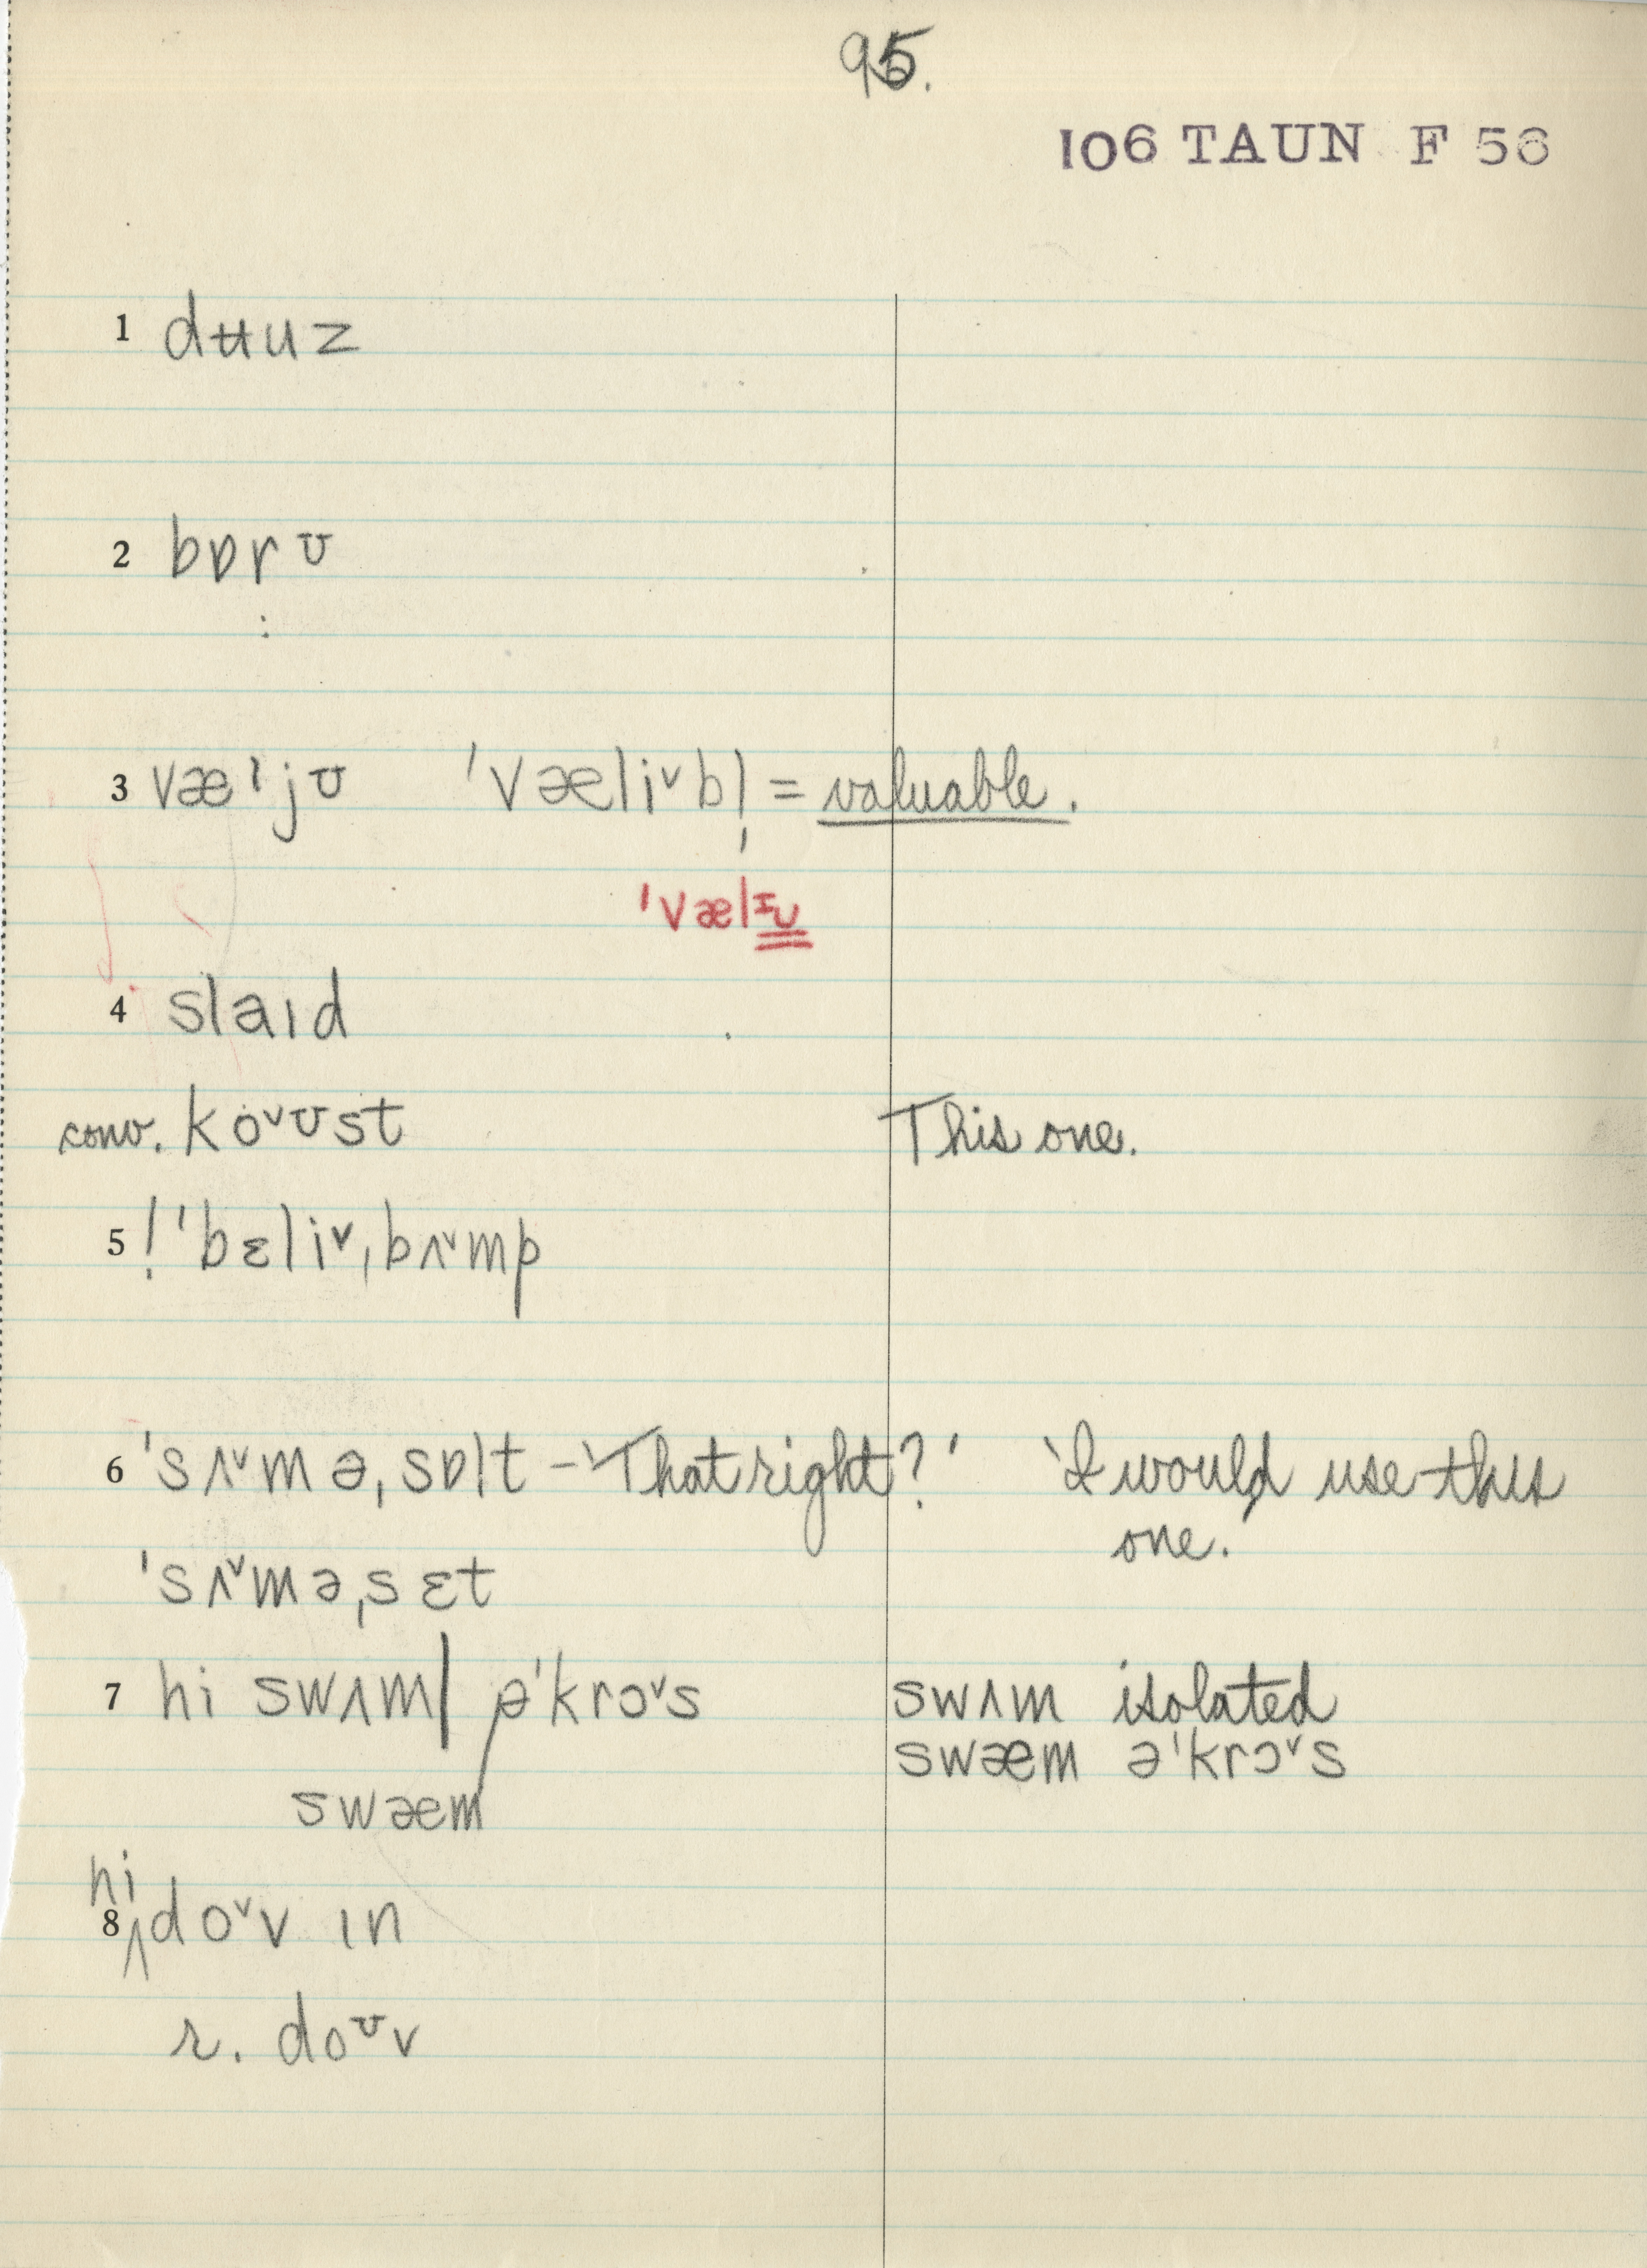 95.
106 TAUN F 56
1 dʉuz
2 bɒrʊ
:
3 væljʊ 'væliˇbl̩ = valuable.
'vælɪu
4 slaɪd
conv. koˇʊst This one.
5 ! 'bɛliˇˌbʌˇmp
6 'sʌˇməˌsɒlt – 'That right?' 'I would use this
one.'
'sʌˇməˌsɛt
7 hi swʌm| ə'krɔˇs swʌm isolated
swæm swæm ə'krɔˇs
hi
8 ^doˇv ɪn
r. doʊv